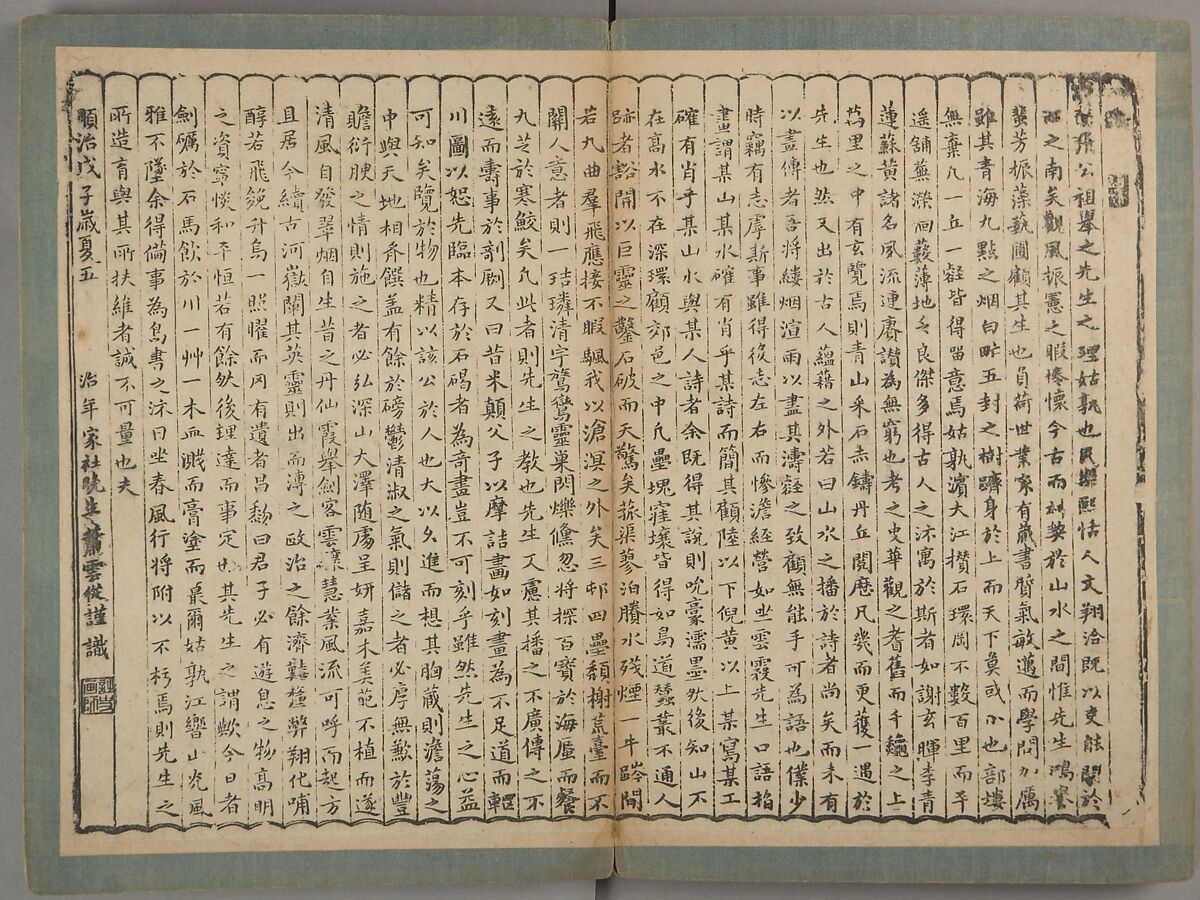 張公祖舉之先生之理姑孰也民樂熙恬人文翔洽既以吏能聞於
之南矣觀風振憲之暇惓懷今古而於山水之間惟先生鴻
芳振藻藝圃顧其生也負荷世業家有藏書質氣敏邁而學問加厲
雖其青海九點之烟白畛五封之樹躋身於上而天下莫或小也部塿
無棄凡一丘一壑皆得留意焉姑孰濱大江攅石環岡不數百里而平
遥鋪蕪濼畫薮薄地乏良傑多得古人之沵寓於斯者如謝玄暉李青
蓮蘇黄諸名風流連賡讃為無窮也考之史華觀之耆舊而千龝之上
萬里之中有玄覽焉則青山釆石赤鑄丹丘閱歷凡幾而更獲一遇於
先生也然又出於古人蘊藉之外若曰山水之播於詩者尚矣而未有
以畫傳者吾將縷烟渲雨以畫其濤壑之致顧無能手可為語也僕少
時竊有志虖斯事雖得後志左右而慘澹経營如坐雲霧先生口語指
畫謂某山某水確有肖乎某詩而簡其顧陸以下倪黄以上某寫某工
確有肖乎某山水與某人詩者余既得其說則吮豪濡墨然後知山不
在高水不在深環顧郊邑之中凡壘塊窪壤皆得如鳥道蠶叢不通人
跡者豁開以巨靈之鑿石破而天驚矣蓀渠蓼泊賸水殘煙一牛跨閒
若九曲羣飛應接不暇颿我以滄溟之外矣三邨四壘頽榭荒臺而不
關人意者則一琣璘清宇驚鸞靈巢閃爍儵忽將探百寶於海蜃而餐
九芝於寒鮫矣凡此者則先生之教也先生又慮其播之不廣傳之不
遠而壽事於剞劂又曰昔米顛父子以摩詰畫如刻畫為不足道而輞
川圖以恕先臨本存於石碣者為竒畫豈不可刻乎雖然先生之心益
可知矣覽於物也精以該公於人也大以久進而想其胸藏則澹蕩之
中與天地相斉饌盖有餘於磅礡鬱清淑之氣則儲之者必厚無歉於豐
贍衍腴之情則施之者必弘深山大澤随處呈妍嘉禾美苑不植而遂
清風自發翠烟自生昔之丹仙霞舉劍客雲讓慧業風流可呼而起方
且居今續古河嶽闡其英靈則出而溥之政治之餘濟囏釐弊翔化哺
醇若飛兔升烏一照曜而冈有遺者昌黎曰君子必有遊息之物髙明
之資寧惔和平恒若有餘然後理達而事定也其先生之謂歟今日者
劍礪於石馬飲於川一艸一木血濺而膏塗而最爾姑孰江響山光風
雅不墜余得僃事為鳥書之沵日坐春風行將附以不朽焉則先生之
所造育與其所扶維者誠不可量也夫
順治戊子歲夏五
治年家社晚生蕭雲從謹識